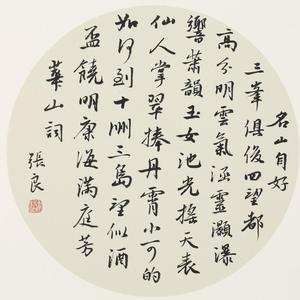 名山自好
三峯俱後四望都
高分明雲氣溼靈灝瀑
響蕭韻玉女池光搖天表
仙人掌翠捧丹霄小可的
如何到十洲三島望似酒
盃饒明康海滿庭芳
華山詞
張良